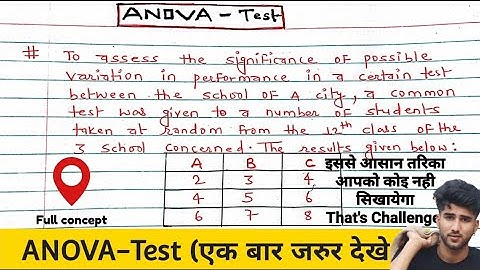 ANOVA - Test
# To assess the significance of possible
variation in performance in a certain test
between the school of A city, a common
test was given to a number of students
taken at random from the 12th class of the
3 school concerned. The results given below:
A B C
2 3 4
4 5 6
6 7 8
इससे आसान तरिका
आपको कोइ नही
सिखायेगा
That's Challenge
Full concept
ANOVA-Test (एक बार जरुर देखे